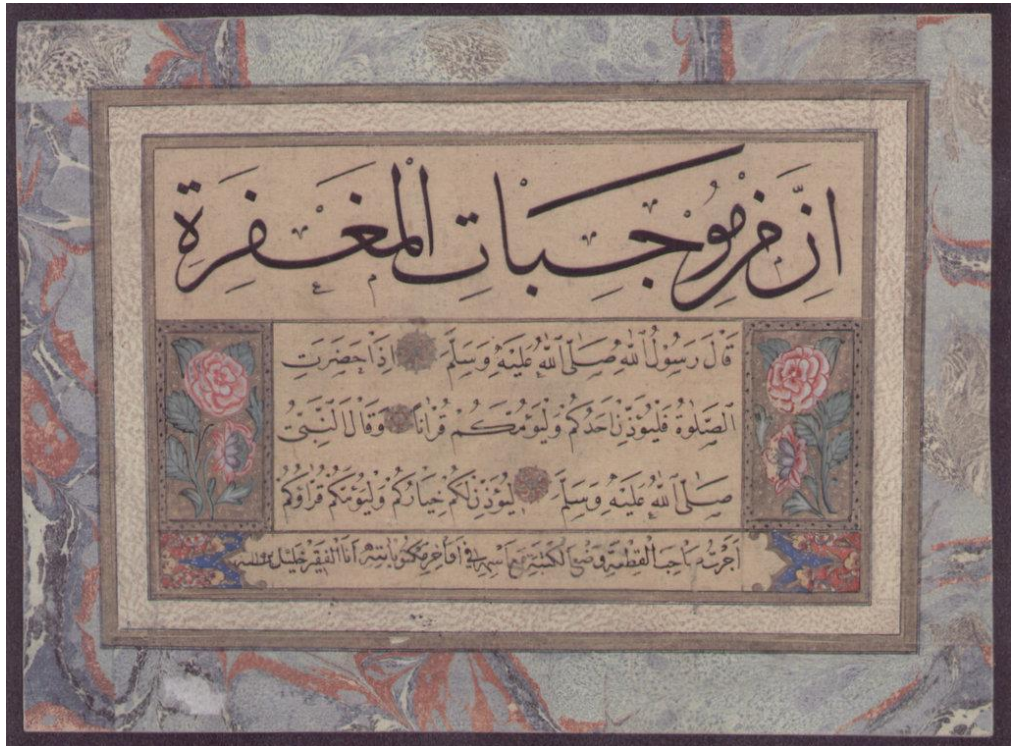 اِنَّ مِنْ مُوْجِبَاتِ الْمَغْفِرَةِ
قَالَ رَسُوْلُ اللّٰهِ صَلَّى اللّٰهُ عَلَيْهِ وَسَلَّمَ اِذَا حَضَرَتِ
الصَّلٰوةُ فَلْيُؤَذِّنْ اَحَدُكُمْ وَلْيَؤُمَّكُمْ قُرْاٰنًا وَقَالَ النَّبِيُّ
صَلَّى اللّٰهُ عَلَيْهِ وَسَلَّمَ لِيُؤَذِّنْ لَكُمْ خِيَارُكُمْ وَلْيَؤُمَّكُمْ قُرَّاؤُكُمْ
اَجَزْتُ صَاحِبَ الْقِطْعَةِ الْكَتَبَةِ اَنَا الْفَقِيْر خَلِيْل